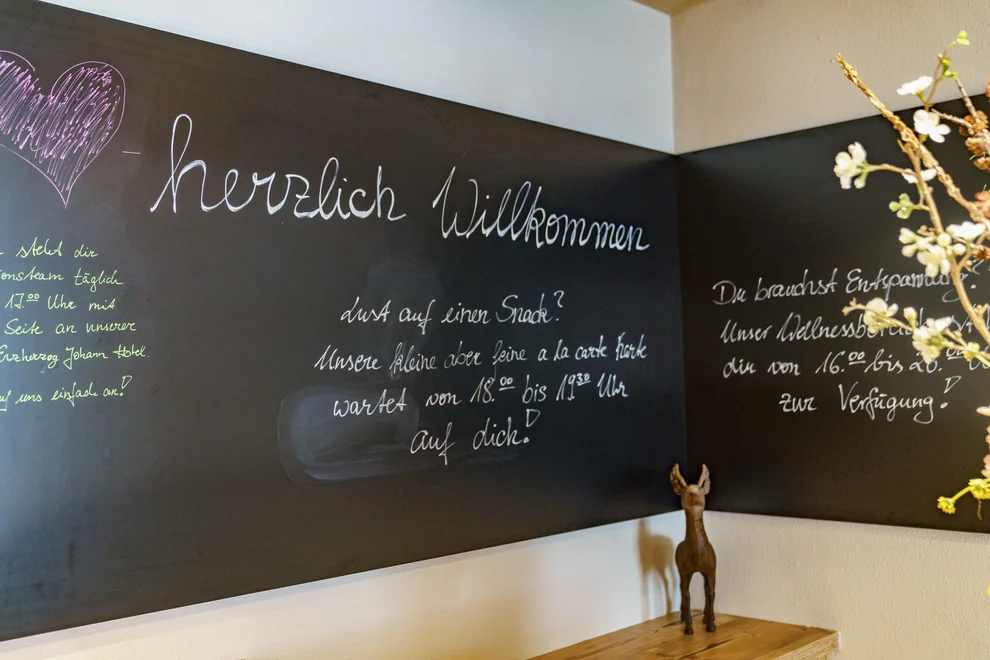 herzlich Willkommen
steht dir
täglich
17.00 Uhr mit
Seite an unserer
Erzherzog Johann Hotel.
uns einfach an!
Lust auf einen Snack?
Unsere kleine aber feine a la carte Karte
wartet von 18.00 bis 19 30 Uhr
auf dich!
Du brauchst Entspannung?
Unser Wellnessbereich
dir von 16.00 bis 20.
zur Verfügung!